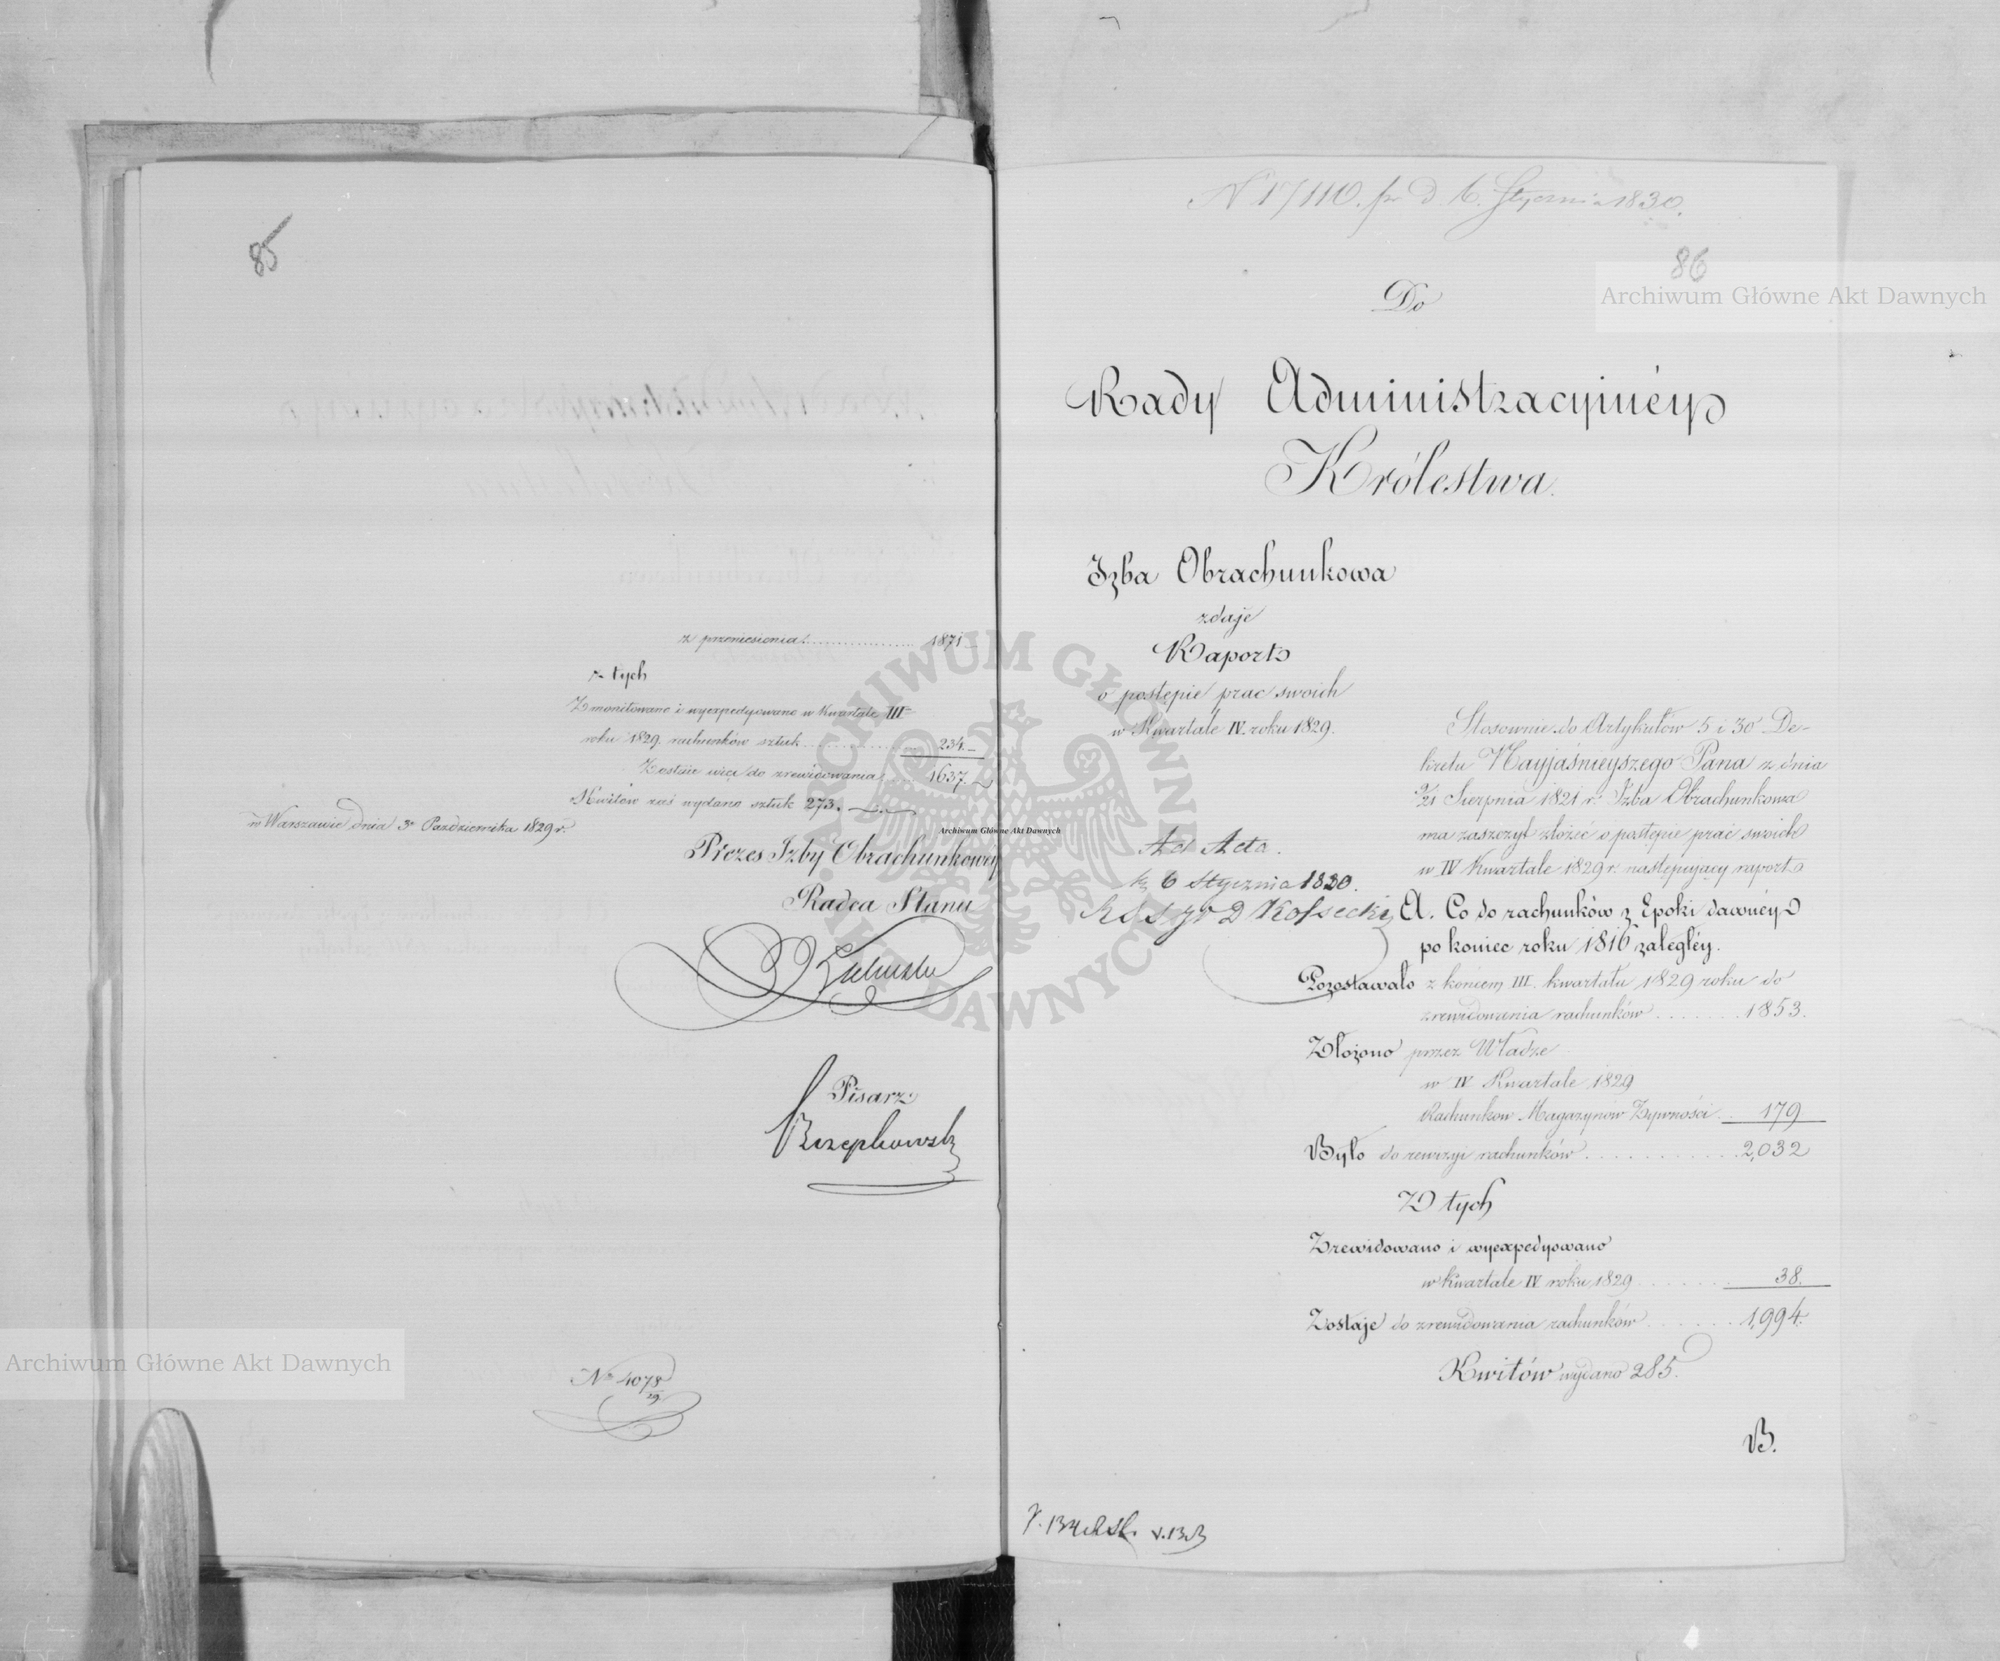 85
z przeniesienia 1871
z tych
Zmonitowano i wyexpedyowano w Kwartale III
roku 1829. rachunków sztuk 234.
Zostaie więc do zrewidowania 1637.
Kwitów zaś wydano sztuk 273.
w Warszawie dnia 3o Października 1829 r.
Prezes Izby Obrachunkowey
Radca Stanu
Pisarz
Brzepkowski
No 4078
29.
N 17110. pr d 6. Stycznia 1830.
86
Do
Rady Administracyjnéy
Królestwa.
Izba Obrachunkowa
zdaje
Raport
o postępie prac swoich
w Kwartale IV. roku 1829.
Stosownie do Artykułów 5 i 30 De-
kretu Nayjaśnieyszego Pana z dnia
9/21 Sierpnia 1821 r. Izba Obrachunkowa
ma zaszczyt złożéć o postępie prac swoich
w IV Kwartale 1829 r. następujący raport
Ad Acta.
6 Stycznia 1830.
Kossecki
A. Co do rachunków z Epoki dawnéy
po koniec roku 1816 zaległéy.
Pozostawało z końcem III. kwartału 1829 roku do
zrewidowania rachunków 1853.
Złożono przez Władze
w IV Kwartale 1829
Rachunków Magazynów Żywności 179
Było do rewizyi rachunków 2,032
Z tych
Zrewidowano i wyexpedyowano
w Kwartale IV roku 1829 38.
Zostaje do zrewidowania rachunków 1,994.
Kwitów wydano 285.
B.
Archiwum Główne Akt Dawnych
Archiwum Główne Akt Dawnych
Archiwum Główne Akt Dawnych
ARCHIWUM GŁÓWNE AKT DAWNYCH